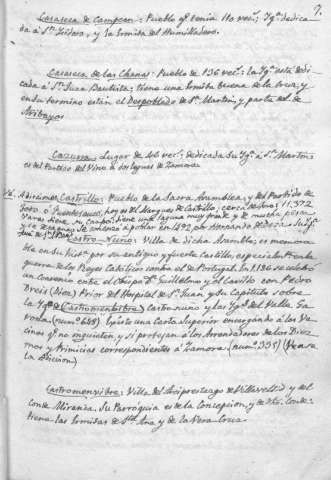 7.
Casaseca de Campean: Pueblo q.e tenia 110 vec.s; Yg.a dedica-
da á S.n Isidoro, y la Ermita del Humilladero.
Casaseca de las Chanas: Pueblo de 136 vec.s: la Yg.a está dedi-
cada á S.n Juan Bautista: tiene una Ermita buena de la Cruz, y
en su termino están el despoblado de S.n Martin, y parte del de
Aribayos
Cazurra. Lugar de 106 vec.s; dedicada su Yg.a á S.n Martin:
es del Partido del Vino á dos leguas de Zamora
Castrillo: Pueblo de la Sacra, Arambica, y del Partido de
Toro
hoy es del Marques de Castrillo; cerca de
una laguna muy grande y de mucha pesca
se á poblar en 1492, por Hernando de
Castro-Nuño: Villa de dicha Aramb.a; es memora-
ble en su Hist.a por su antiguo y fuerte Castillo, especialm.te en la
guerra de los Reyes Católicos contra el de Portugal. En 1186 se celebró
un Convenio entre el Obispo D.n Guillelmo y el Cavildo con Pedro
Dreis (Diez) Prior del Hospital de S.n Juan y su Capitulo sobre
la Yg.a de Castromembibre, Castro-nuño y las Yg.s del Valle. Ga-
rona (num.o 668) Existe una Carta Superior encargando á los Ve-
cinos q.e no inquieten, y si protejan á los Arrendadores de los Diez-
mos y Primicias correspondientes á Zamora (num.o 335) (Vease
la Adicion)
Castromembibre: Villa del Arciprestazgo de Villavellid y del
Conde Miranda. Su Parroquia es de la Concepcion, y de
tiene las Ermitas de S.ta Ana y de la Vera Cruz.